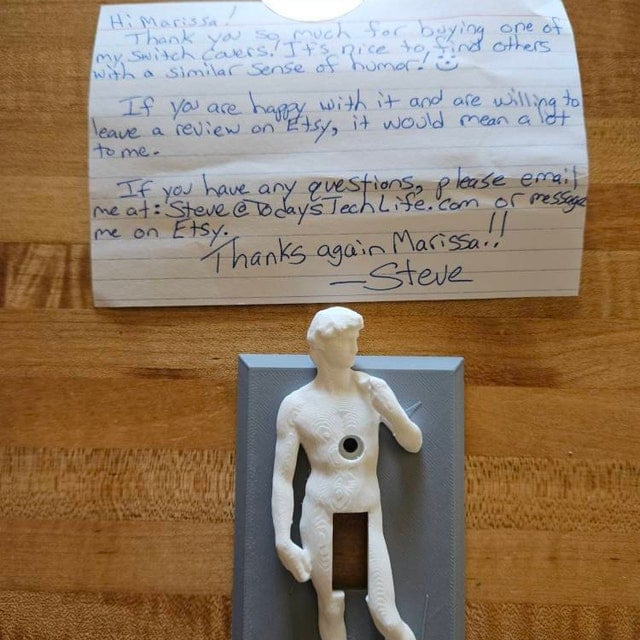 Hi Marissa!
Thank you so much for buying one of
my switch covers! It's nice to find others
with a similar sense of humor!
If you are happy with it and are willing to
leave a review on Etsy, it would mean a lot
to me.
If you have any questions, please email
me at: Steve@TodaysTechLife.com or message
me on Etsy.
Thanks again Marissa!!
—Steve